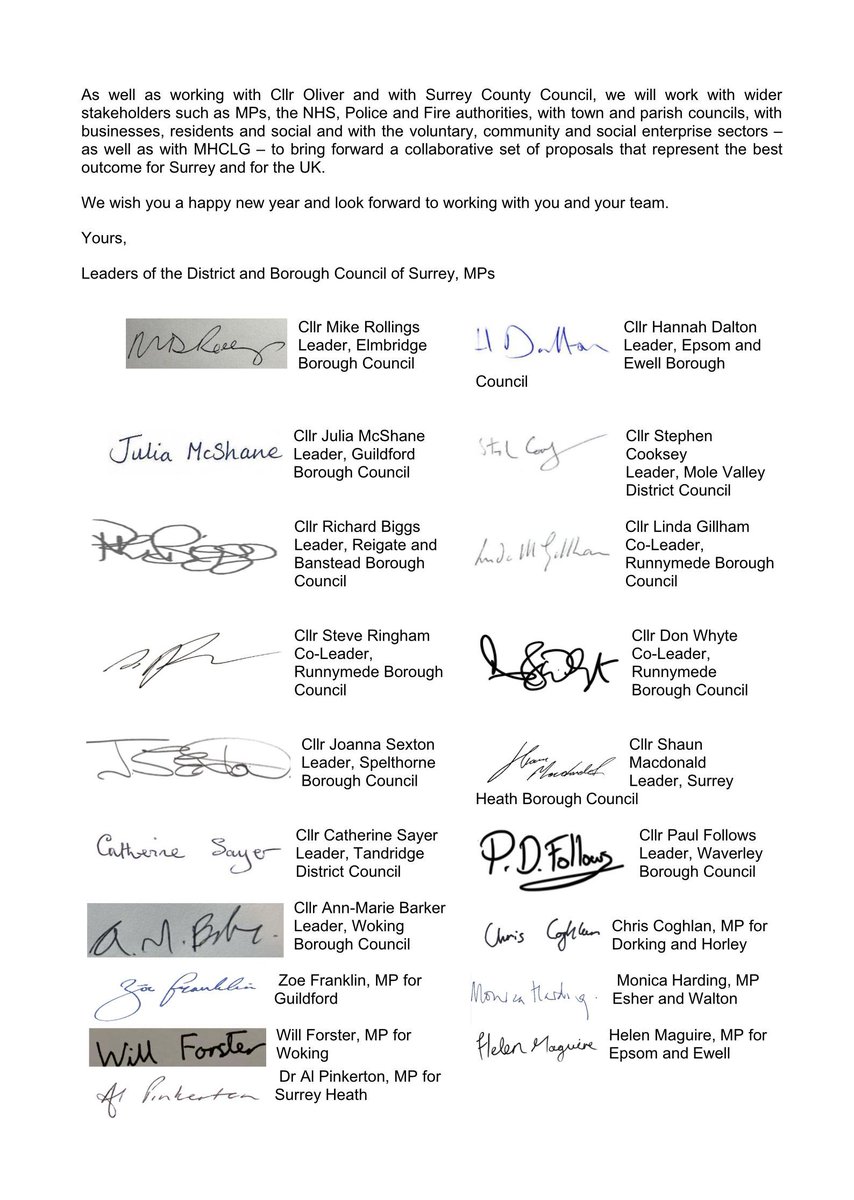 As well as working with Cllr Oliver and with Surrey County Council, we will work with wider
stakeholders such as MPs, the NHS, Police and Fire authorities, with town and parish councils, with
businesses, residents and social and with the voluntary, community and social enterprise sectors –
as well as with MHCLG – to bring forward a collaborative set of proposals that represent the best
outcome for Surrey and for the UK.
We wish you a happy new year and look forward to working with you and your team.
Yours,
Leaders of the District and Borough Council of Surrey, MPs
Cllr Mike Rollings
Leader, Elmbridge
Borough Council
H Dalton
Cllr Hannah Dalton
Leader, Epsom and
Ewell Borough
Council
Julia McShane
Cllr Julia McShane
Leader, Guildford
Borough Council
Cllr Stephen
Cooksey
Leader, Mole Valley
District Council
Cllr Richard Biggs
Leader, Reigate and
Banstead Borough
Council
Linda M Gillham
Cllr Linda Gillham
Co-Leader,
Runnymede Borough
Council
Cllr Steve Ringham
Co-Leader,
Runnymede Borough
Council
Cllr Don Whyte
Co-Leader,
Runnymede
Borough Council
J Sexton
Cllr Joanna Sexton
Leader, Spelthorne
Borough Council
Shaun
Macdonald
Cllr Shaun
Macdonald
Leader, Surrey
Heath Borough Council
Catherine Sayer
Cllr Catherine Sayer
Leader, Tandridge
District Council
P.D.Follows
Cllr Paul Follows
Leader, Waverley
Borough Council
Cllr Ann-Marie Barker
Leader, Woking
Borough Council
Chris Coghlan
Chris Coghlan, MP for
Dorking and Horley
Zöe Franklin
Zoe Franklin, MP for
Guildford
Monica Harding.
Monica Harding, MP
Esher and Walton
Will Forster
Will Forster, MP for
Woking
Helen Maguire
Helen Maguire, MP for
Epsom and Ewell
Al Pinkerton
Dr Al Pinkerton, MP for
Surrey Heath